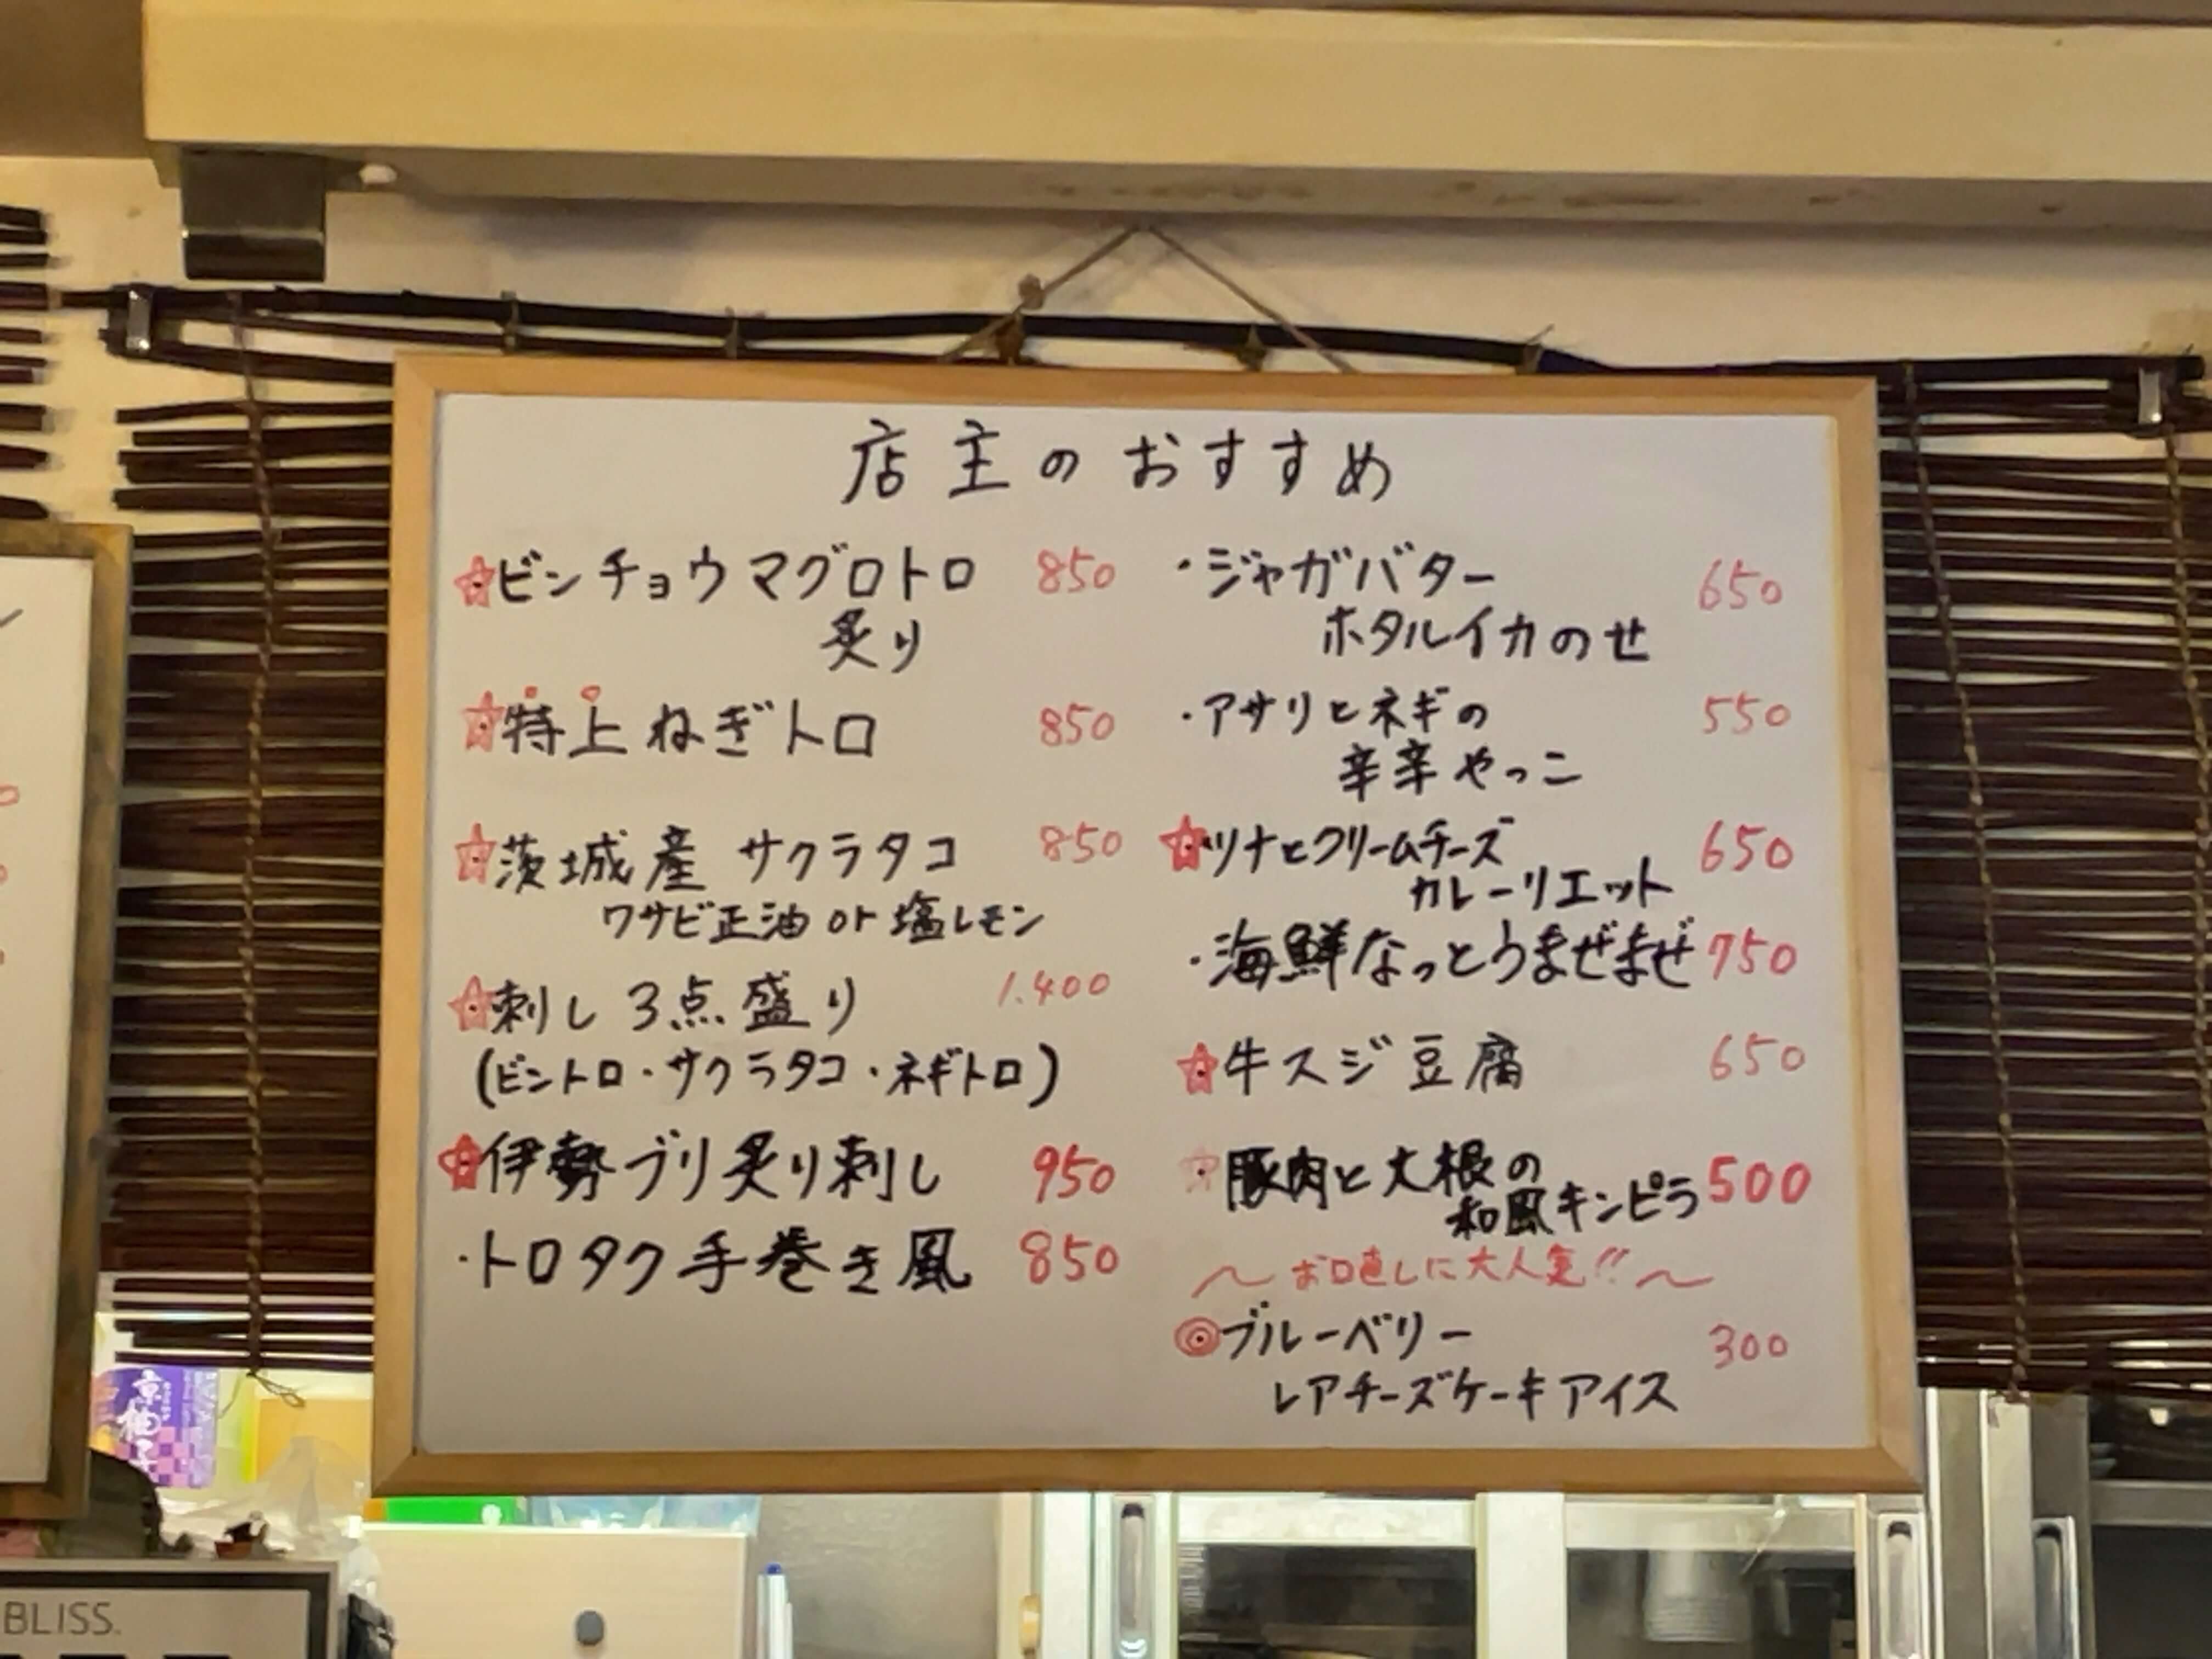 店主のおすすめ
☆ビンチョウマグロトロ 850
炙り
☆特上ねぎトロ 850
☆茨城産 サクラタコ 850
ワサビ正油 or 塩レモン
☆刺し3点盛り 1.400
(ビントロ・サクラタコ・ネギトロ)
☆伊勢ブリ炙り刺し 950
・トロタク手巻き風 850
・ジャガバター 650
ホタルイカのせ
・アサリとネギの 550
辛辛やっこ
☆ツナとクリームチーズ 650
カレーリエット
・海鮮なっとうまぜまぜ 750
☆牛スジ豆腐 650
☆豚肉と大根の 500
和風キンピラ
〜お口直しに大人気!!〜
◎ブルーベリー 300
レアチーズケーキアイス
BLISS.